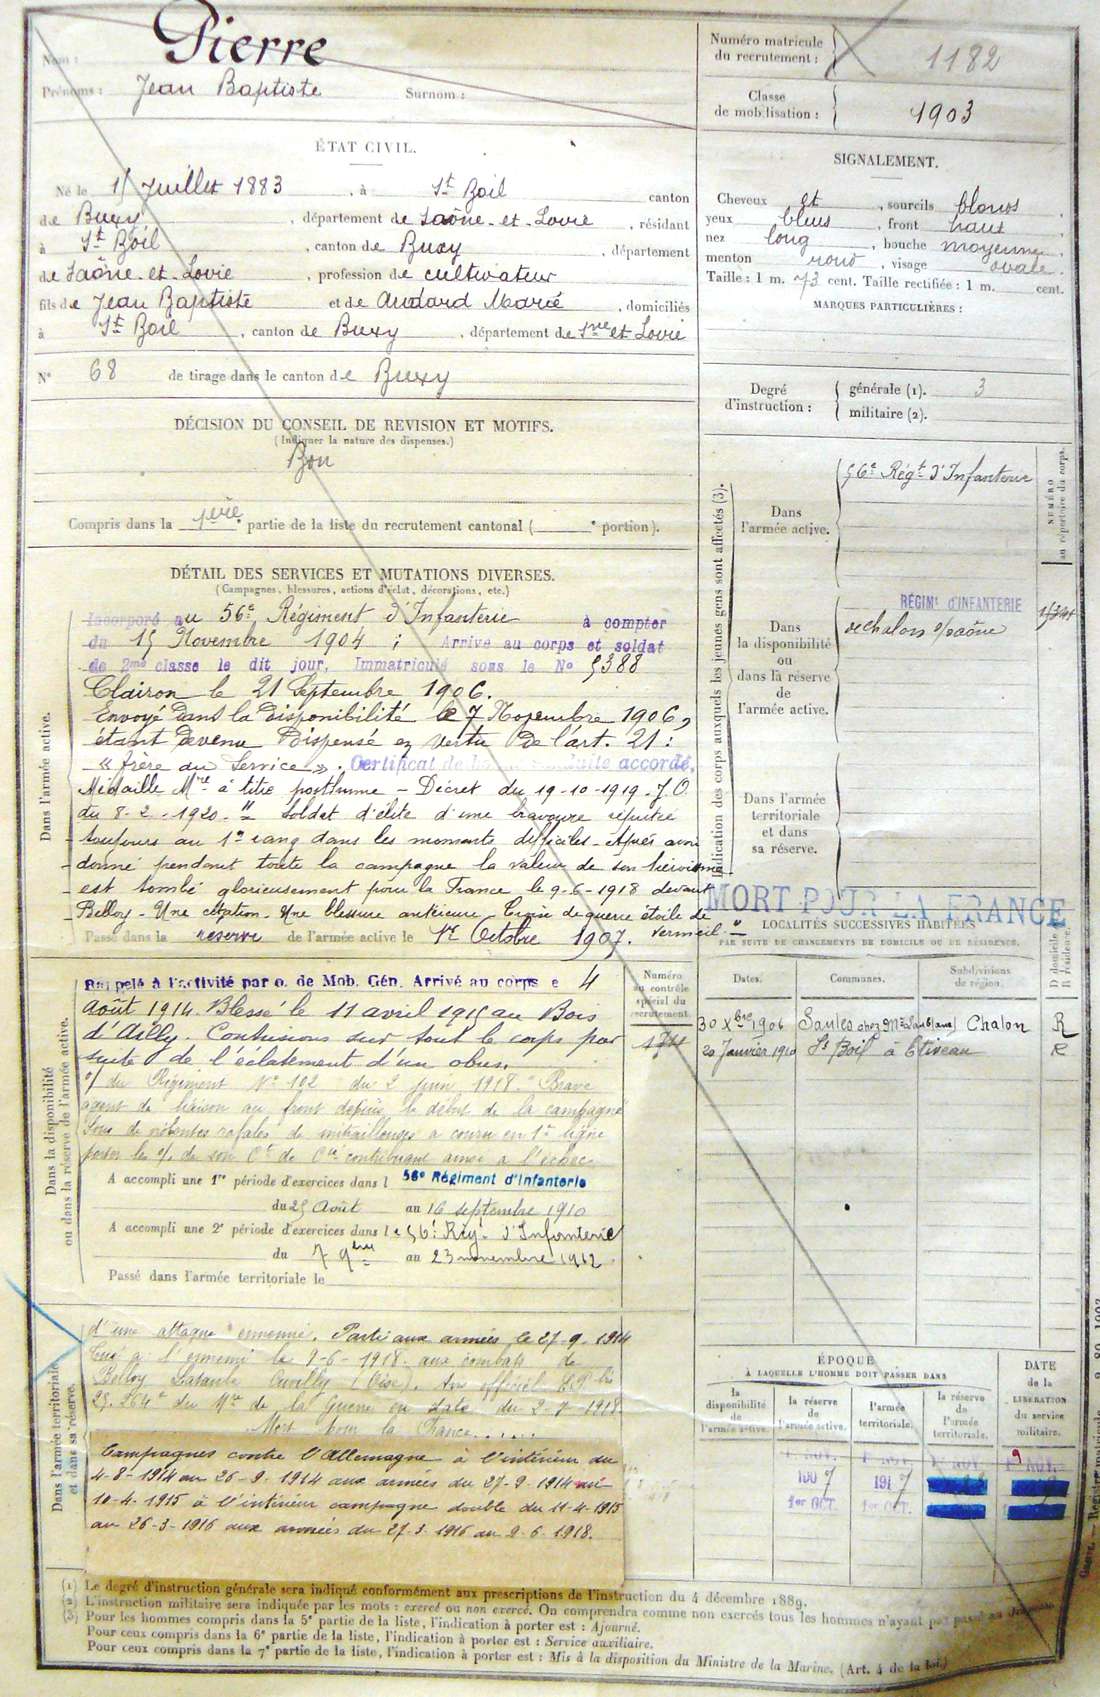 Nom : Pierre
Prénoms : Jean Baptiste Surnom :
ÉTAT CIVIL.
Né le 15 Juillet 1883, à St Boil canton
de Buxy, département de Saône-et-Loire, résidant
à St Boil, canton de Buxy, département
de Saône-et-Loire, profession de cultivateur
fils de Jean Baptiste et de Audard Marie, domiciliés
à St Boil, canton de Buxy, département de Sne et Loire
N° 68 de tirage dans le canton de Buxy
DÉCISION DU CONSEIL DE REVISION ET MOTIFS.
(Indiquer la nature des dispenses.)
Bon
Compris dans la 1ère partie de la liste du recrutement cantonal ( e portion).
DÉTAIL DES SERVICES ET MUTATIONS DIVERSES.
(Campagnes, blessures, actions d'éclat, décorations, etc.)
Dans l'armée active.
Incorporé au 56e Régiment d'Infanterie à compter
du 15 Novembre 1904 ; Arrivé au corps et soldat
de 2me classe le dit jour, Immatriculé sous le No 5388
Clairon le 21 Septembre 1906.
Envoyé dans la disponibilité le 7 Novembre 1906,
étant devenu dispensé en vertu de l'art. 21 :
« frère au Service ». Certificat de bonne conduite accordé.
Médaille Mre à titre posthume - Décret du 19-10-1919. J.O
du 8-2-1920. " Soldat d'élite d'une bravoure réputée
toujours au 1er rang dans les moments difficiles. Après avoir
donné pendant toute la campagne la valeur de son héroïsme
est tombé glorieusement pour la France le 9-6-1918 devant
Belloy - Une citation - Une blessure antérieure. Croix de guerre étoile de
vermeil " -
Passé dans la réserve de l'armée active le 1er Octobre 1907.
Dans la disponibilité
ou dans la réserve de l'armée active.
Rappelé à l'activité par o. de Mob. Gén. Arrivé au corps le 4
Août 1914. Blessé le 11 avril 1915 au Bois
d'Ailly. Contusions sur tout le corps par
suite de l'éclatement d'un obus.
du Régiment No 102 du 2 juin 1918. " Brave
agent de liaison au front depuis le début de la campagne
Sous de violentes rafales de mitrailleuses a couru en 1e ligne
porter les de son Ct de Cie contribuant ainsi à l'échec
A accompli une 1re période d'exercices dans l 56e Régiment d'Infanterie
du 25 Août au 16 septembre 1910
A accompli une 2e période d'exercices dans le 56e Rég. d'Infanterie
du 7 9bre au 23 novembre 1912
Passé dans l'armée territoriale le
Dans l'armée territoriale
et dans sa réserve.
d'une attaque ennemie. Parti aux armées le 27-9-1914
Tué à l'ennemi le 9-6-1918 aux combats de
Belloy Lataule Cuvilly (Oise). Avis officiel
29.264 du Mre de la Guerre en date du 2-7-1918
Mort pour la France.....
Campagnes contre l'Allemagne à l'intérieur du
4-8-1914 au 26-9-1914 aux armées du 27-9-1914 au
10-4-1915 à l'intérieur campagne double du 11-4-1915
au 26-3-1916 aux armées du 27-3-1916 au 9-6-1918.
Numéro
au contrôle
spécial du
recrutement.
174
Numéro matricule
du recrutement : 1182
Classe
de mobilisation : 1903
SIGNALEMENT.
Cheveux et, sourcils blonds,
yeux bleus, front haut,
nez long, bouche moyenne,
menton rond, visage ovale.
Taille : 1 m. 73 cent. Taille rectifiée : 1 m. cent.
MARQUES PARTICULIÈRES :
Degré
d'instruction :
générale (1). 3
militaire (2).
Indication des corps auxquels les jeunes gens sont affectés (3).
NUMÉRO
au répertoire du corps.
Dans
l'armée active.
56e Régt d'Infanterie
Dans
la disponibilité
ou
dans la réserve
de
l'armée active.
RÉGIMt d'INFANTERIE
de Chalon s/Saône
Dans l'armée
territoriale
et dans
sa réserve.
MORT POUR LA FRANCE
LOCALITÉS SUCCESSIVES HABITÉES
PAR SUITE DE CHANGEMENTS DE DOMICILE OU DE RÉSIDENCE.
Dates. Communes. Subdivisions
de région. D domicile
R résidence.
30 Xbre 1906 Saules chez Chalon R
20 Janvier 1910 St Boil à Etiveau R
ÉPOQUE
À LAQUELLE L'HOMME DOIT PASSER DANS
la
disponibilité
de
l'armée active.
la réserve
de
l'armée active.
l'armée
territoriale.
la réserve
de
l'armée
territoriale.
DATE
de la
LIBÉRATION
du service
militaire.
1907 1917
1er OCT. 1er OCT.
(1) Le degré d'instruction générale sera indiqué conformément aux prescriptions de l'instruction du 4 décembre 1889.
(2) L'instruction militaire sera indiquée par les mots : exercé ou non exercé. On comprendra comme non exercés tous les hommes n'ayant pas passé au
(3) Pour les hommes compris dans la 5e partie de la liste, l'indication à porter est : Ajourné.
Pour ceux compris dans la 6e partie de la liste, l'indication à porter est : Service auxiliaire.
Pour ceux compris dans la 7e partie de la liste, l'indication à porter est : Mis à la disposition du Ministre de la Marine. (Art. 4 de la loi.)